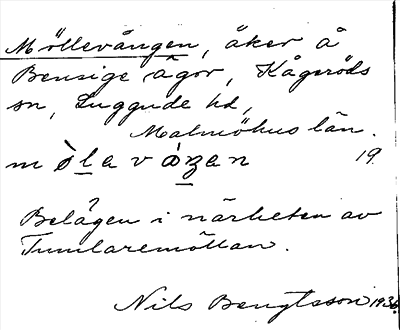 Möllevången, åker å
Bensige ägor, Kågeröds
sn, Luggude hd,
Malmöhus län.
m ò l a v à z a n 19
Belägen i närheten av
Tumlaremöllan.
Nils Bengtsson 1936.